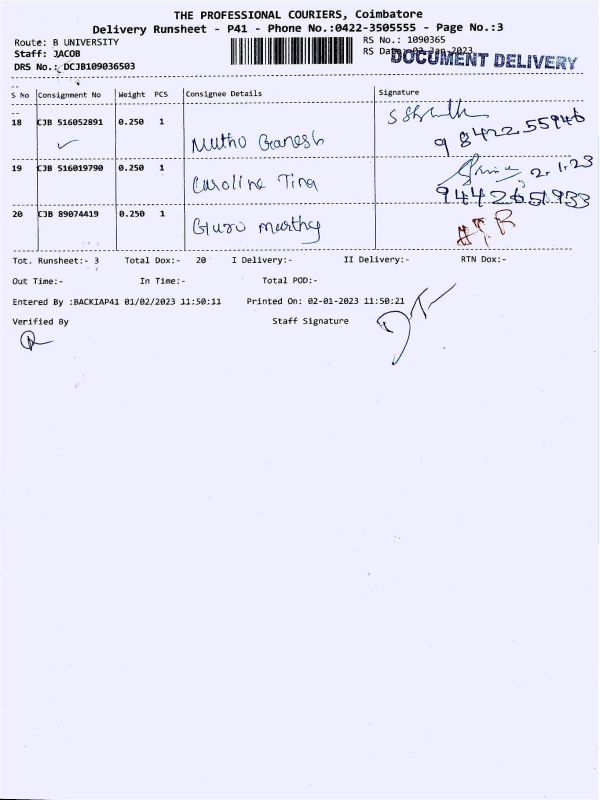 THE PROFESSIONAL COURIERS, Coimbatore
Delivery Runsheet - P41 - Phone No.:0422-3505555 - Page No.:3
Route: B UNIVERSITY RS No.: 1090365
Staff: JACOB RS Date: 02 Jan 2023
DOCUMENT DELIVERY
DRS No.: DCJB109036503
S No Consignment No Weight PCS Consignee Details Signature
18 CJB 516052891 0.250 1 Muthu Ganesh 98422 55946
19 CJB 516019790 0.250 1 Caroline Tina 2.1.23
9442651933
20 CJB 89074419 0.250 1 Guru Murthy
Tot. Runsheet:- 3 Total Dox:- 20 I Delivery:- II Delivery:- RTN Dox:-
Out Time:- In Time:- Total POD:-
Entered By :BACKIAP41 01/02/2023 11:50:11 Printed On: 02-01-2023 11:50:21
Verified By Staff Signature